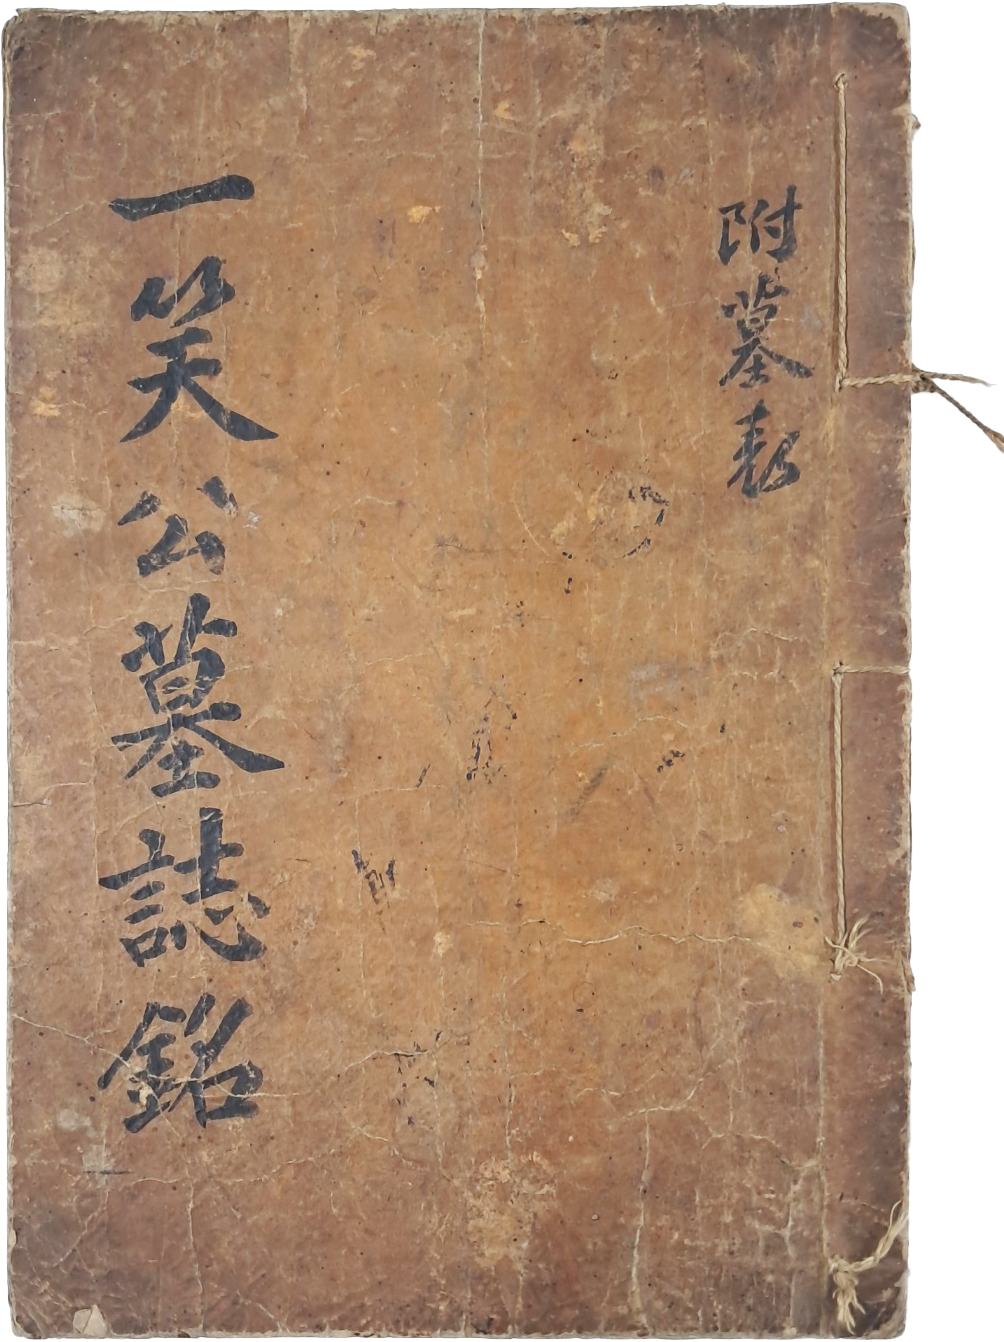 附墓表
一笑公墓誌銘